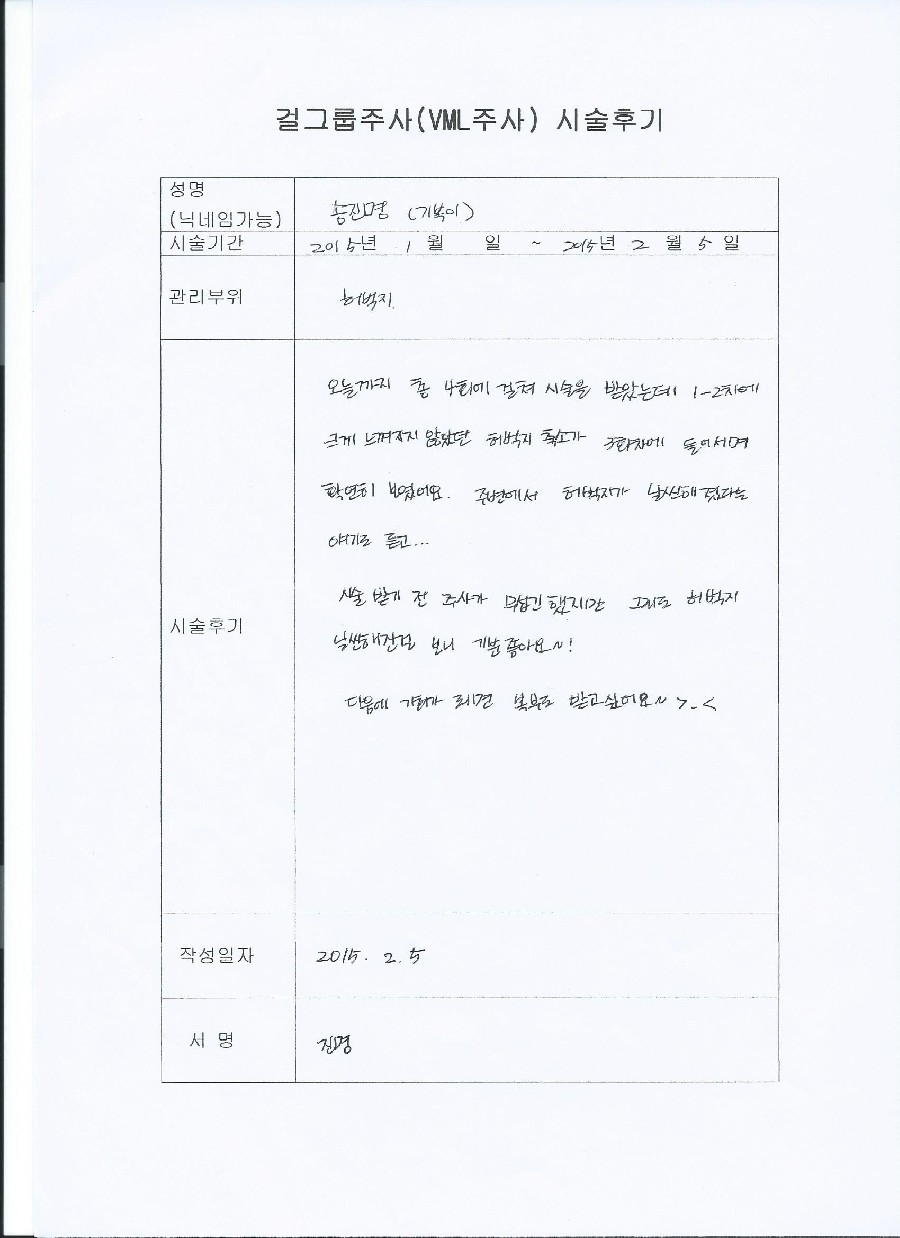 걸그룹주사(VML주사) 시술후기
성명
(닉네임가능)
송진명 (기복이)
시술기간 2015년 1월 일 ~ 2015년 2월 5일
관리부위 허벅지
시술후기
오늘까지 총 4회에 걸쳐 시술을 받았는데 1-2차에
크게 느껴지지 않았던 허벅지 축소가 3회차에 들어서며
확연히 보였어요. 주변에서 허벅지가 날씬해졌다는
얘기도 듣고...
시술 받기 전 주사가 무섭긴 했지만 그래도 허벅지
날씬해진걸 보니 기분좋아요~!
다음에 기회가 되면 복부도 받고싶어요~ >_<
작성일자 2015. 2. 5
서 명 진명